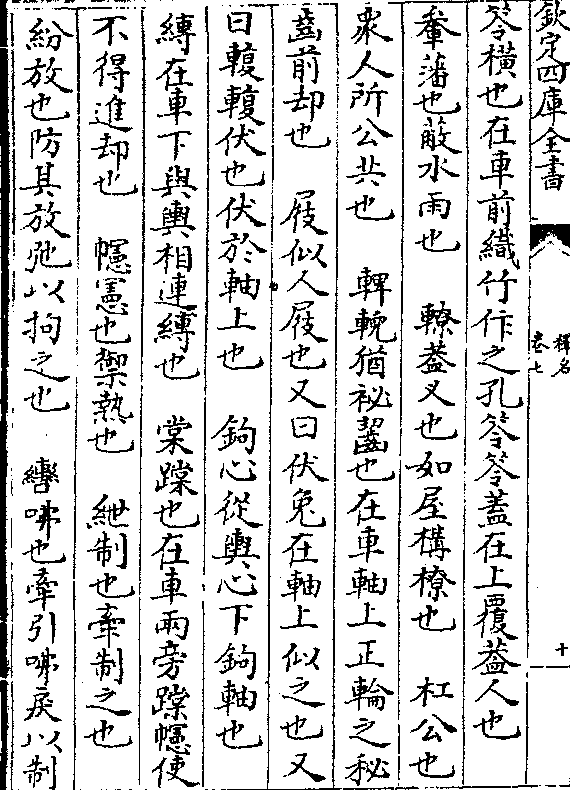 欽定四庫全書
釋名
卷七
十
笭橫也在車前織竹作之孔笭笭蓋在上覆葢人也
軬藩也蔽水雨也　轑葢叉也如屋構橑也　杠公也
衆人所公共也　䡟輗猶祕齧也在車軸上正輪之秘
齒前却也　屐似人屐也又曰伏兔在軸上似之也又
曰䡡䡡伏也伏於軸上也　鉤心從輿心下鉤軸也
縳在車下與輿相連縳也　棠蹀也在車兩旁蹀幰使
不得進却也　幰憲也禦熱也　紲制也牽制之也
紛放也防其放弛以拘之也　轡咈也牽引咈戾以制